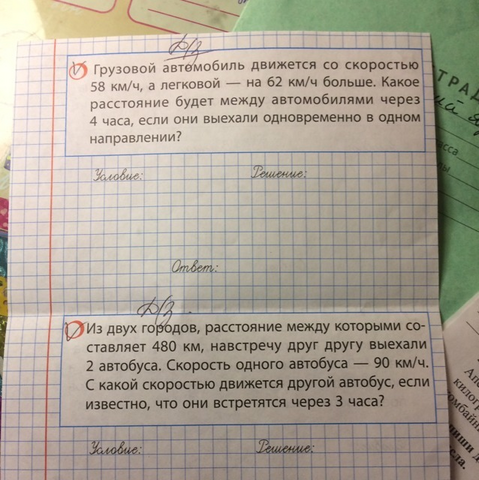 Д/З
Грузовой автомобиль движется со скоростью
58 км/ч, а легковой — на 62 км/ч больше. Какое
расстояние будет между автомобилями через
4 часа, если они выехали одновременно в одном
направлении?
Условие: Решение:
Ответ:
Д/З
Из двух городов, расстояние между которыми со-
ставляет 480 км, навстречу друг другу выехали
2 автобуса. Скорость одного автобуса — 90 км/ч.
С какой скоростью движется другой автобус, если
известно, что они встретятся через 3 часа?
Условие: Решение: